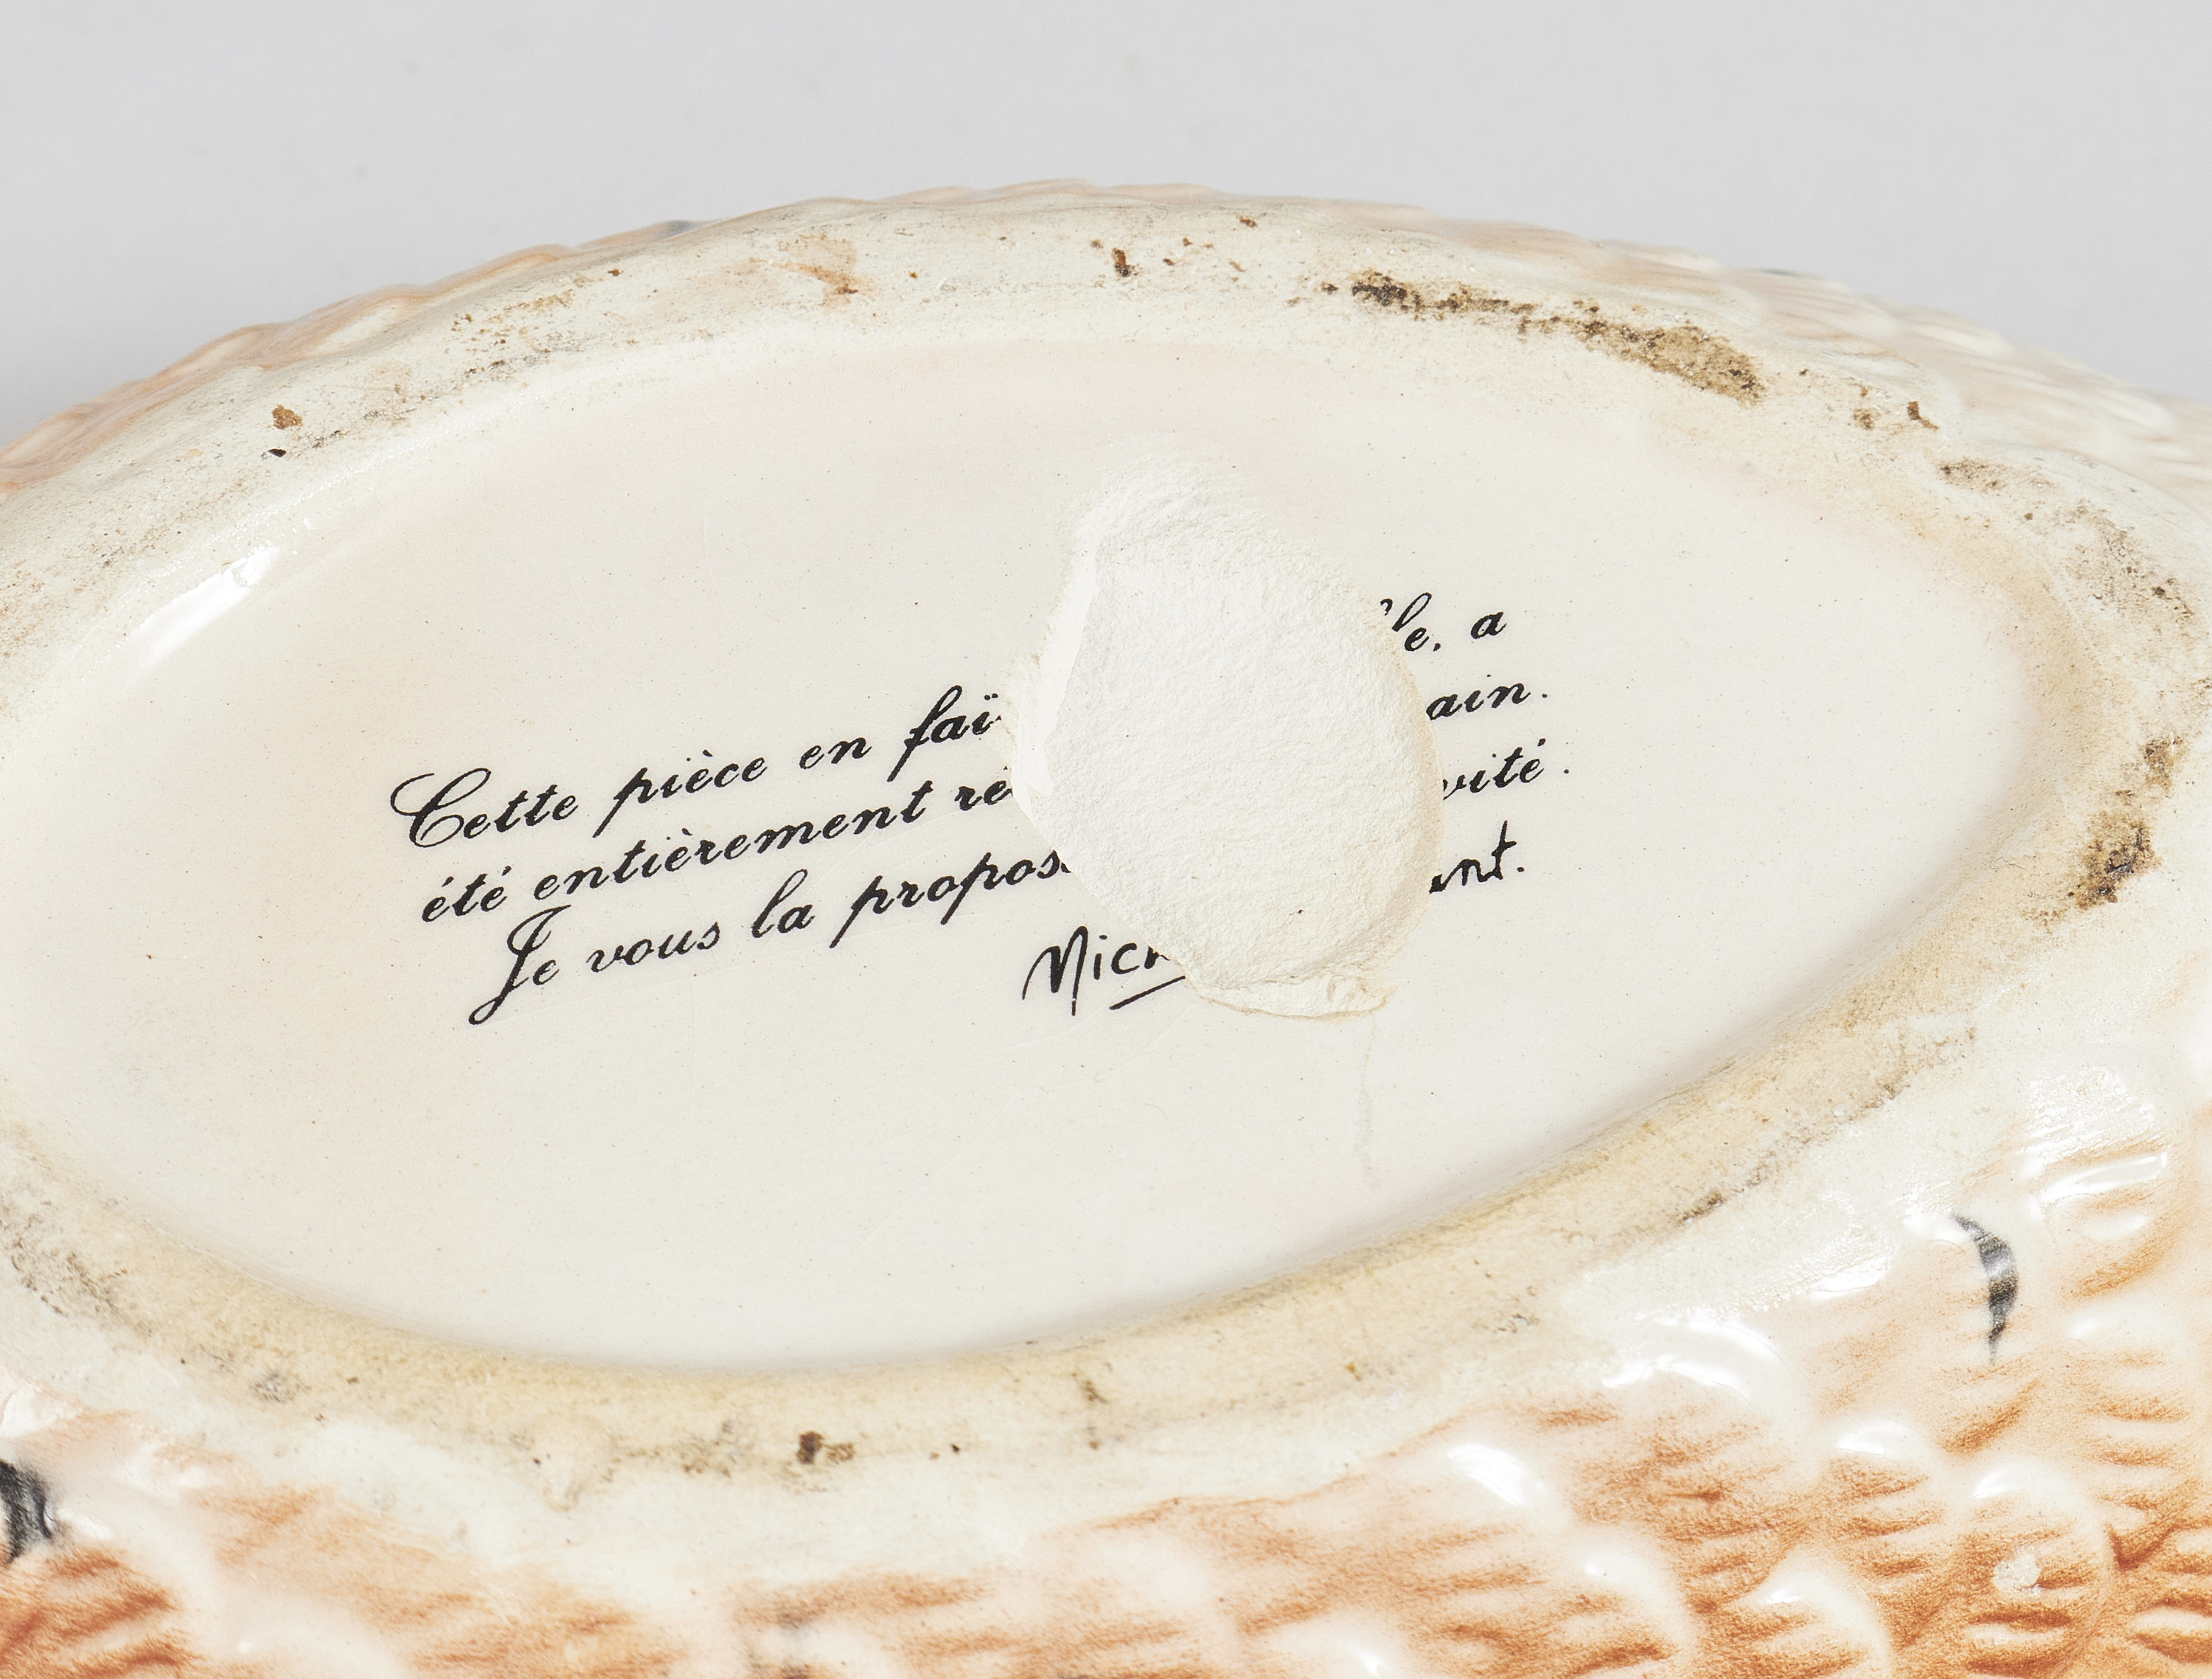 Cette pièce en faï le, a
été entièrement ré ain.
Je vous la propos vité.
Mich ant.